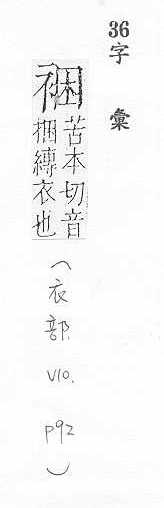 36
字彙
裍
苦本切音
捆縳衣也
(衣部.
V10.
P92
)